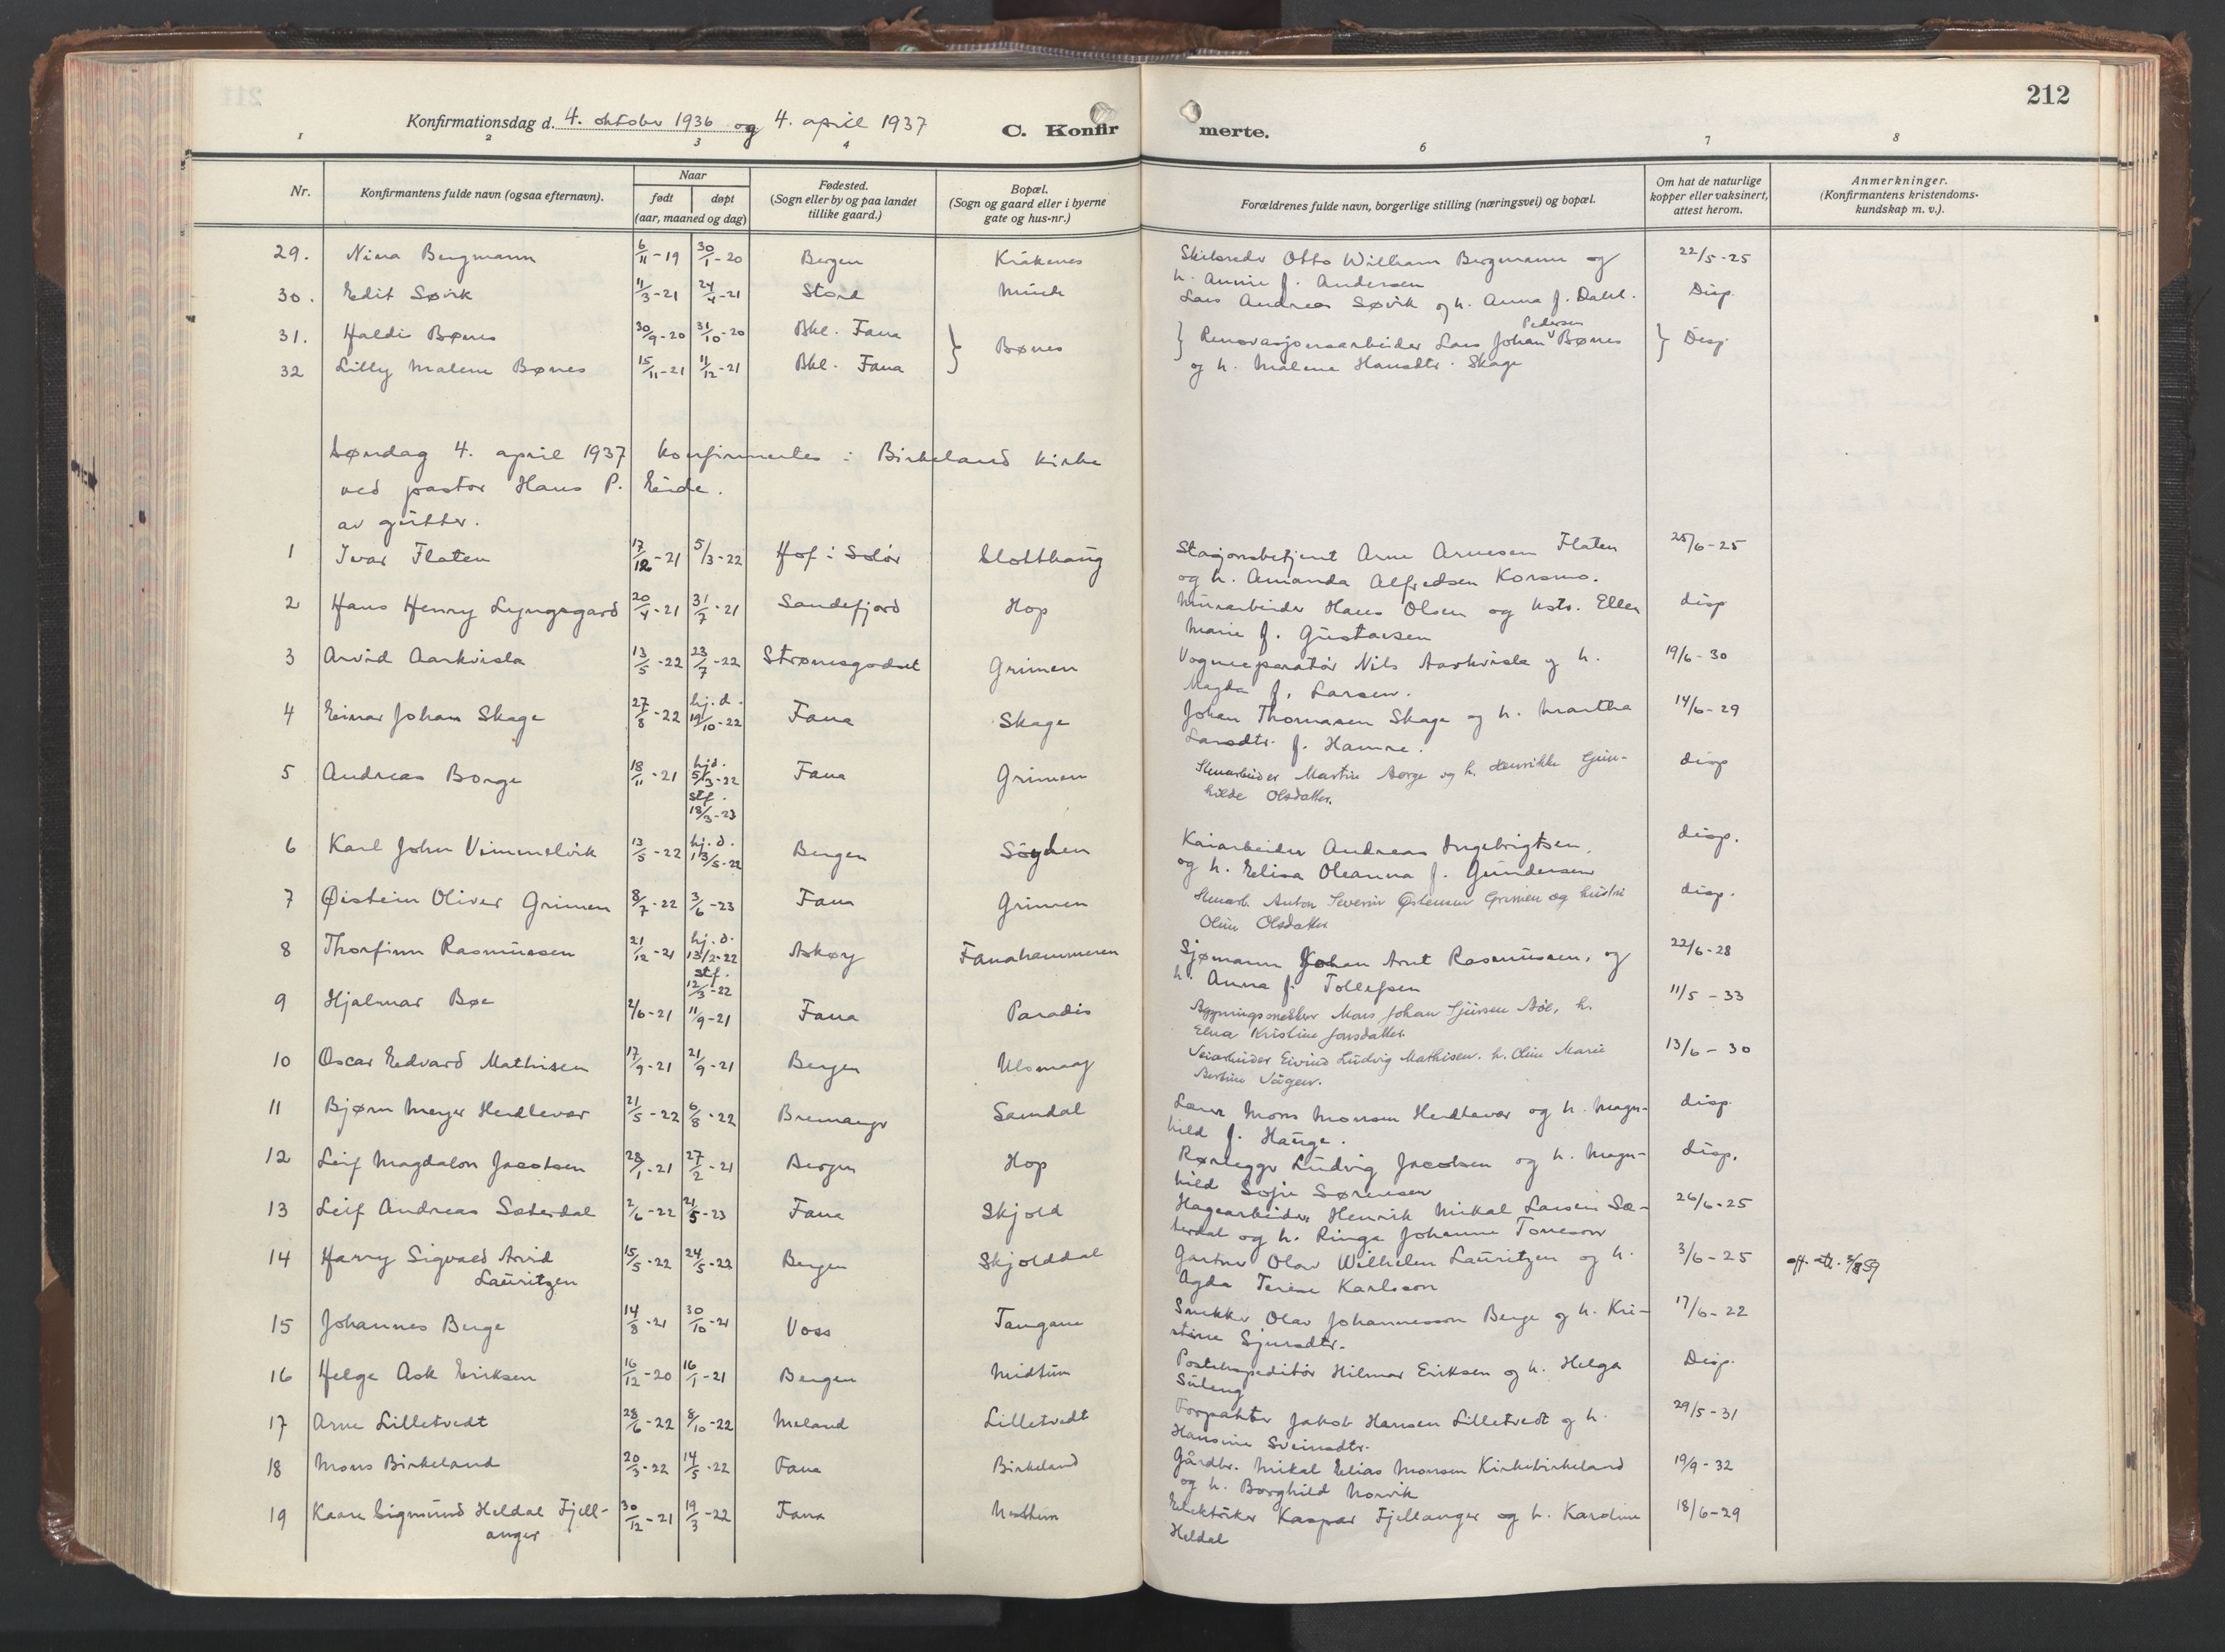 212
Konfirmationsdag d. 4. oktober 1936 og 4. april 1937
C. Konfirmerte.
1 2 3 4 6 7 8
Nr.
Konfirmantens fulde navn (ogsaa efternavn).
Naar
født døpt
(aar, maaned og dag)
Fødested.
(Sogn eller by og paa landet
tillike gaard.)
Bopæl.
(Sogn og gaard eller i byerne
gate og hus-nr.)
Forældrenes fulde navn, borgerlige stilling (næringsvei) og bopæl.
Om hat de naturlige
kopper eller vaksinert,
attest herom.
Anmerkninger.
(Konfirmantens kristendoms-
kundskap m. v.).
29. Nina Bergmann 6/11-19 30/1-20 Bergen Kråkenes Skibsreder Otto William Bergmann og 22/5-25
h. Annie f. Andersen
30. Edit Søvik 11/3-21 24/4-21 Stord Minde Lars Andreas Søvik og h. Anna f. Dahl. Disp.
31. Haldis Bønes 30/9-20 31/10-20 Bkl. Fana } Bønes } Renovasjonsarbeider Lars Johan Pedersen Bønes } Disp.
32 Lilly Malene Bønes 15/11-21 11/12-21 Bkl. Fana og h. Malene Hansdtr. Skage
Søndag 4. april 1937 konfirmertes i Birkeland kirke
ved pastor Hans P. Eide.
av gutter.
1 Ivar Flaten 17/12-21 5/3-22 Hof i Solør Slotthaug Stasjonsbetjent Arne Arnesen Flaten 25/6-25
og h. Amanda Alfredsen Korsmo.
2 Hans Henry Lyngsgard 20/4-21 31/7-21 Sandefjord Hop Murarbeider Hans Olsen og hstr. Ellen disp
Marie f. Gustavsen
3 Arvid Aarkvisla 13/5-22 23/7-22 Strømsgodset Grimen Vognreparatør Nils Aarkvisla og h. 19/6-30
Magda f. Larsen.
4 Einar Johan Skage 27/8-22 hj.d. 19/10-22 Fana Skage Johan Thomassen Skage og h. Martha 14/6-29
Larsdtr. f. Hamre.
5 Andreas Borge 18/11-21 hjd. 5/3-22 stf. 18/3-23 Fana Grimen Stenarbeider Martin Borge og h. Henrikke Gun- disp
hilde Olsdatter.
6 Karl John Vimmelvik 13/5-22 hj.d. 13/5-22 Bergen Søyhen Kaiarbeider Andreas Ingebrigtsen, disp.
og h. Elisa Oleanna f. Gundersen
7 Øistein Oliver Grimen 8/7-22 3/6-23 Fana Grimen Stenarb. Anton Severin Østensen Grimen og hustru disp.
Oline Olsdatter
8 Thorfinn Rasmussen 21/12-21 hj.d. 13/2-22 stf. 12/3-22 Askøy Fanahammeren Sjømann Johan Arnt Rasmussen, og 22/6-28
h. Anna f. Tollefsen
9 Hjalmar Bøe 2/6-21 11/9-21 Fana Paradis Bygningssnekker Mons Johan Sjursen Bøe, h. 11/5-33
Elna Kristine Jonsdatter
10 Oscar Edvard Mathisen 17/9-21 21/9-21 Bergen Ulsmaag Veiarbeider Eivind Ludvig Mathisen. h. Oline Marie 13/6-30
Bertine Vågen.
11 Bjørn Meyer Herdlevær 21/5-22 6/8-22 Bremanger Samdal Lærer Mons Monsen Herdlevær og h. Magn- disp.
hild f. Hauge.
12 Leif Magdalon Jacobsen 28/1-21 27/2-21 Bergen Hop Rørlegger Ludvig Jacobsen og h. Magn- disp.
hild Sofie Sørensen
13 Leif Andreas Sæterdal 2/6-22 21/5-23 Fana Skjold Hagearbeider Henrik Mikal Larsen Sæ- 26/6-25
terdal og h. Ringa Johanne Tonesson
14 Harry Sigvald Arvid 15/5-22 24/5-22 Bergen Skjolddal Gartner Olav Wilhelm Lauritzen og h. 3/6-25 off. att. 5/8 59
Lauritzen Agda Terese Karlsson
15 Johannes Berge 14/8-21 30/10-21 Voss Tangane Snekker Olav Johannesson Berge og h. Kri- 17/6-22
stine Sjursdtr.
16 Helge Ask Eriksen 16/12-20 16/1-21 Bergen Midttun Postekspeditør Hilmar Eriksen og h. Helga Disp.
Suleng
17 Arne Lilletvedt 28/6-22 8/10-22 Meland Lilletvedt Forpakter Jakob Hansen Lilletvedt og h. 29/5-31
Hansine Sveinsdtr.
18 Mons Birkeland 20/3-22 14/5-22 Fana Birkeland Gårdbr. Mikal Elias Monsen Kirkebirkeland 19/9-32
og h. Borghild Norvik
19 Kaare Sigmund Heldal Fjell- 30/12-21 19/3-22 Fana Nesttun Elektriker Kaspar Fjellanger og h. Karoline 18/6-29
anger Heldal